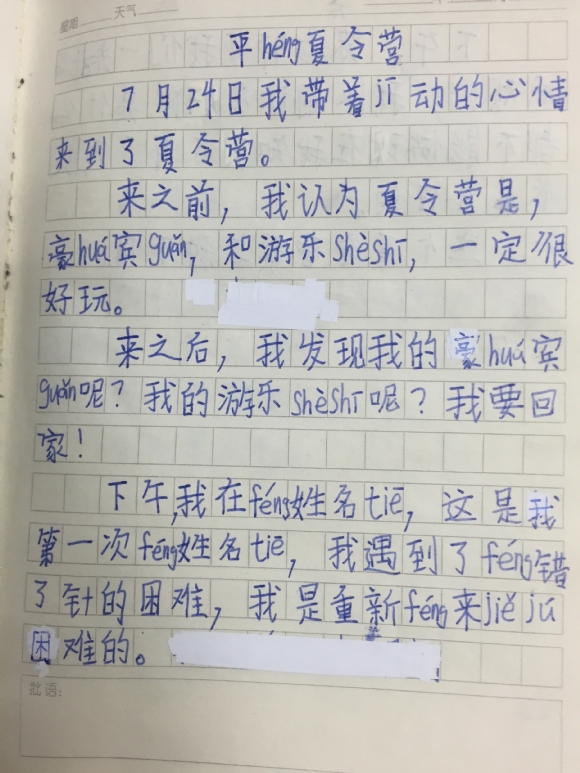 星期 天气
平héng夏令营
7月24日我带着jī动的心情
来到了夏令营。
来之前，我认为夏令营是，
豪huá宾guǎn，和游乐shèshī，一定很
好玩。
来之后，我发现我的豪huá宾
guǎn呢？我的游乐shèshī呢？我要回
家！
下午，我在féng姓名tiē，这是我
第一次féng姓名tiē，我遇到了féng错
了针的困难，我是重新féng来jiějú
困难的。
批语：